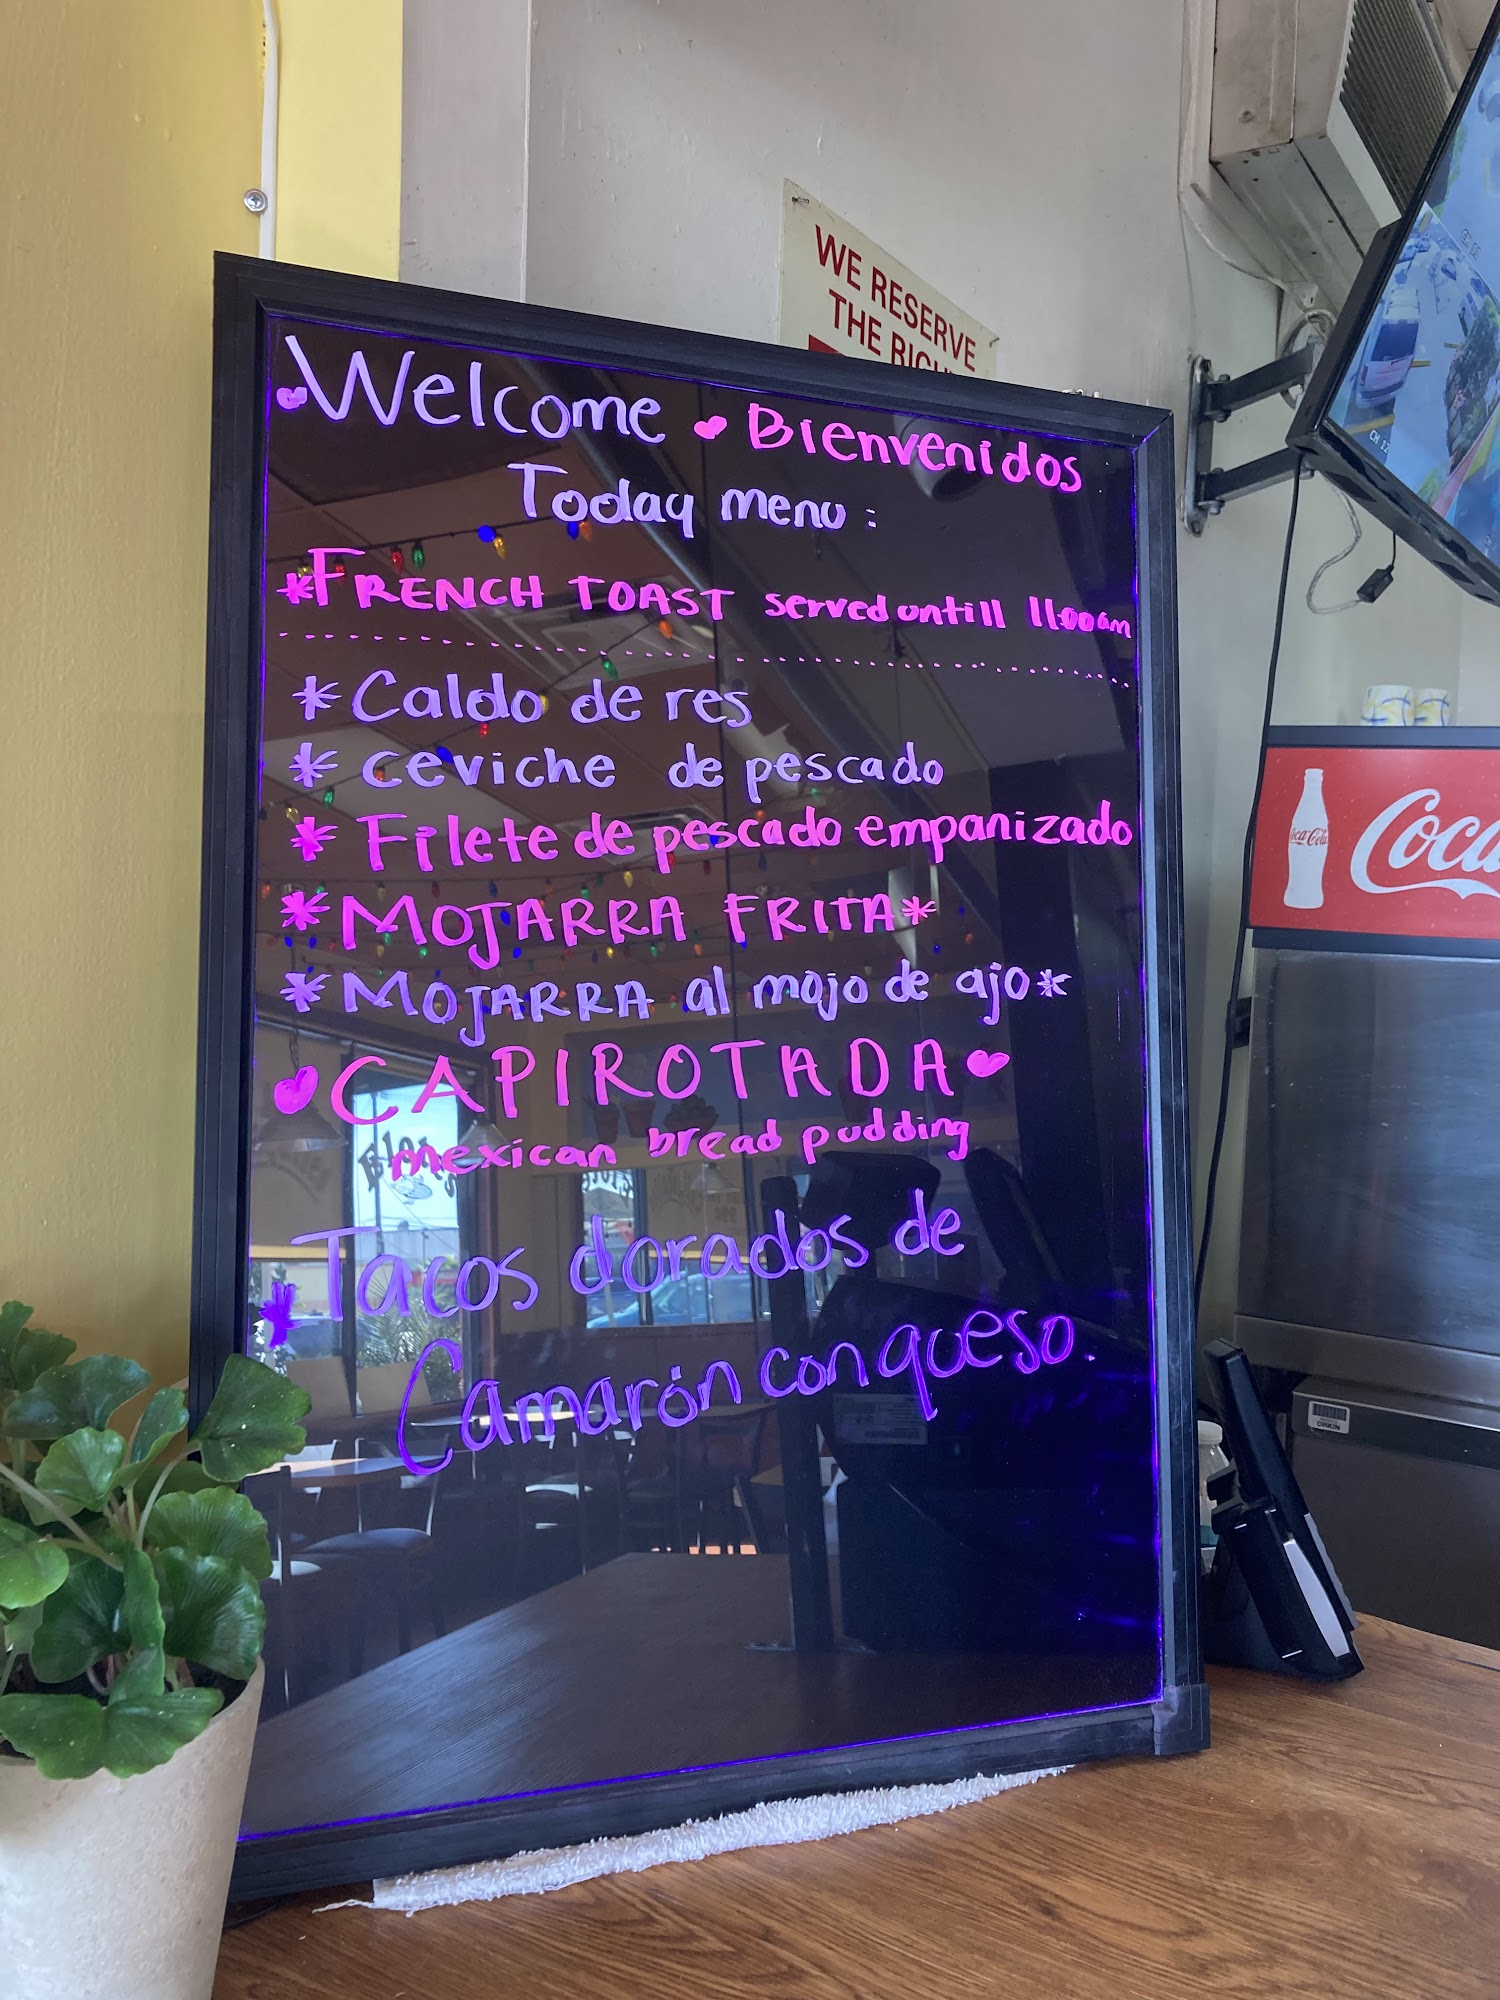 WE RESERVE
THE
Welcome Bienvenidos
Today menu :
*FRENCH TOAST served untill 11:00am
* Caldo de res
* ceviche de pescado
* Filete de pescado empanizado
* MOJARRA FRITA *
* MOJARRA al mojo de ajo *
CAPIROTADA
mexican bread pudding
* Tacos dorados de
Camarón con queso.
Coca-Cola
Coca
ORKIN